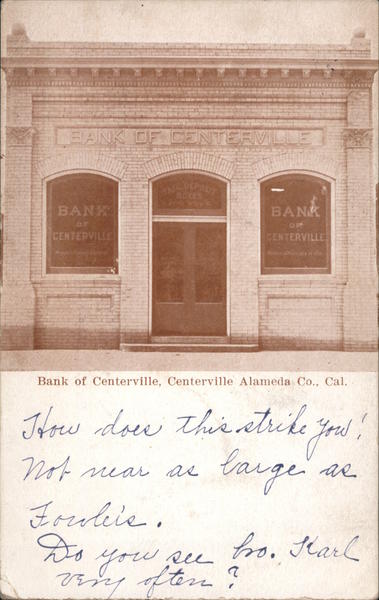 BANK OF CENTERVILLE
SAFE DEPOSIT
BOXES
FOR RENT
BANK
OF
CENTERVILLE
BANK
OF
CENTERVILLE
Bank of Centerville, Centerville Alameda Co., Cal.
How does this strike you!
Not near as large as
Fowler's.
Do you see bro. Karl
very often?